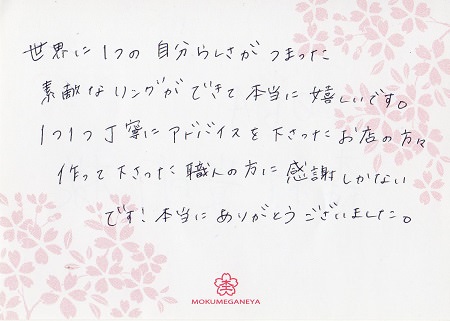 世界に1つの自分らしさがつまった
素敵なリングができて本当に嬉しいです。
1つ1つ丁寧にアドバイスを下さったお店の方々
作って下さった職人の方に感謝しかない
です!本当にありがとうございました。
MOKUMEGANEYA